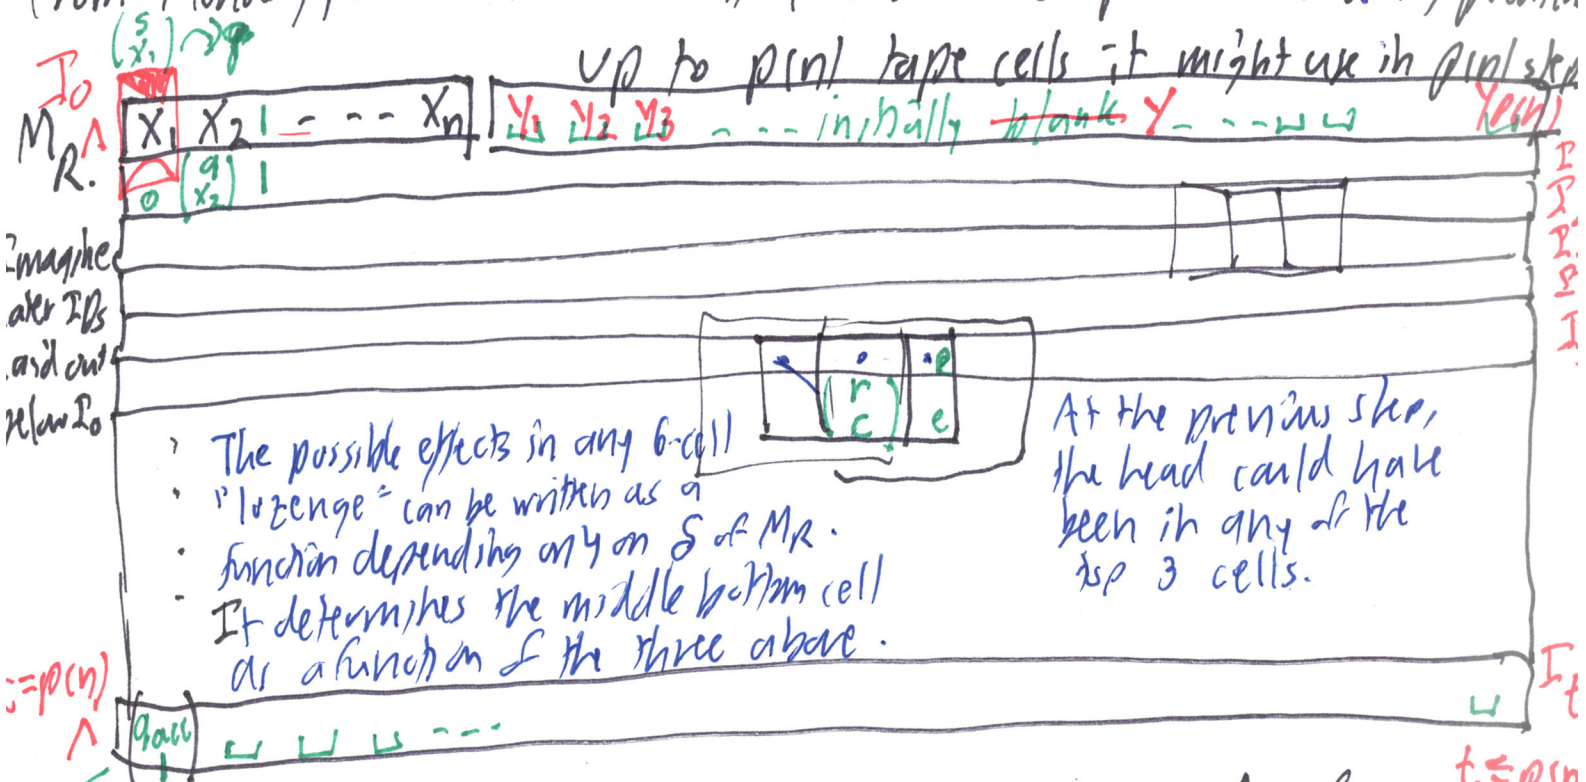 (s x₁) ↷ q
up to p(n) tape cells it might use in p(n) step
I₀
M_R ∧ X₁ X₂ 1 - - - Xₙ Y₁ Y₂ Y₃ - - - initially blank Y - - - ⊔ ⊔
R. 0 (q x₂) 1
Imagine
later IDs
laid out
below I₀
(r c) e
The possible effects in any 6-cell
"lozenge" can be written as a
function depending only on δ of M_R.
It determines the middle bottom cell
as a function of the three above.
At the previous step,
the head could have
been in any of the
top 3 cells.
t=p(n)
∧ q_acc ⊔ ⊔ ⊔ - - - ⊔
I_t
t ≤ p(n